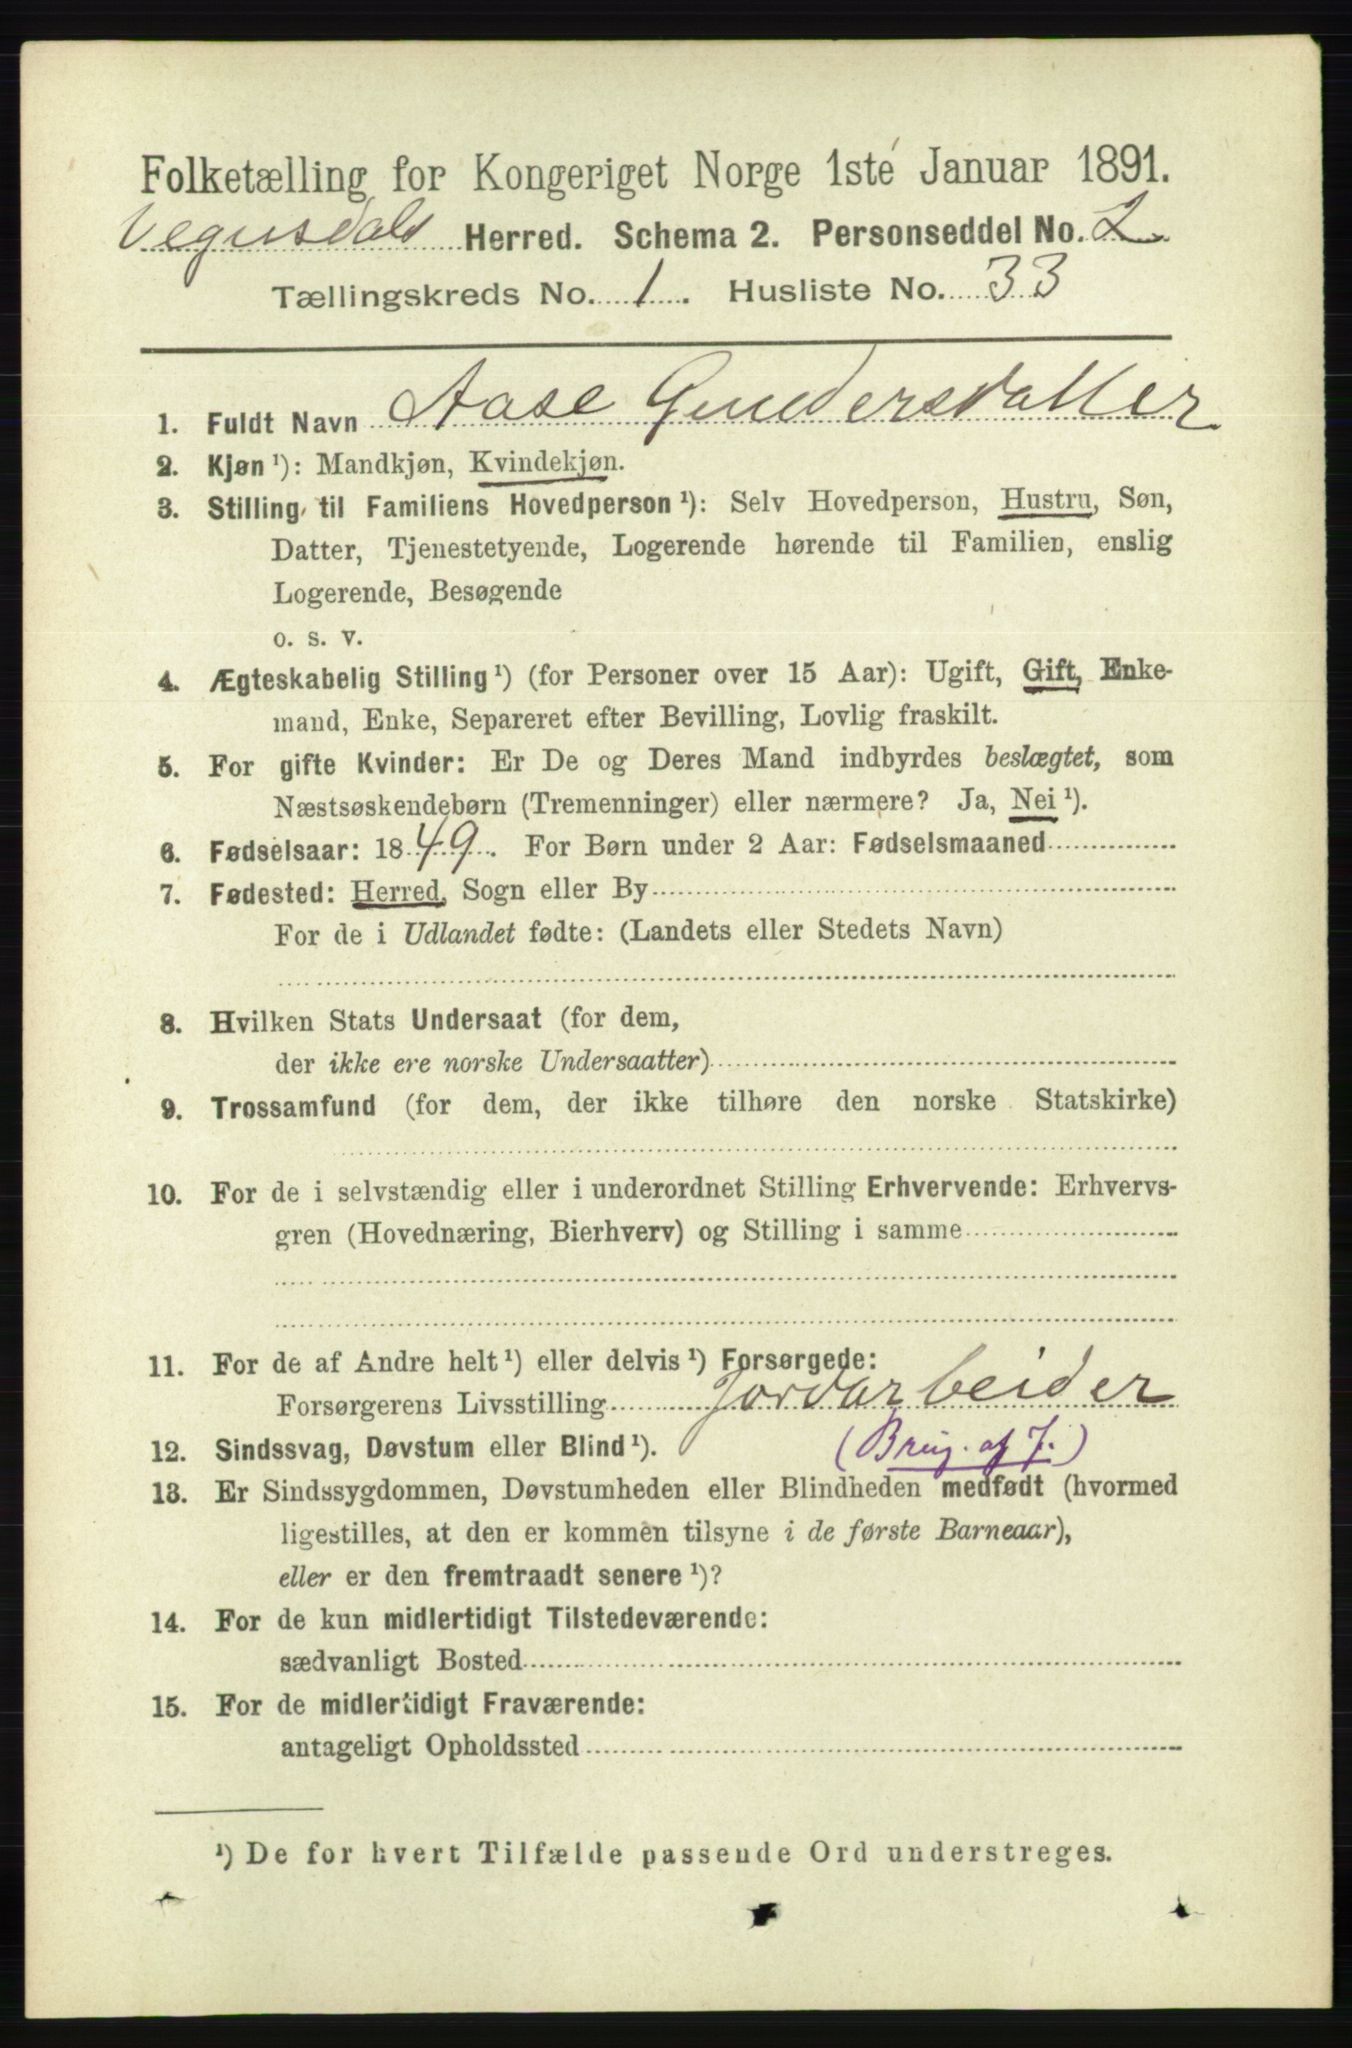 Folketælling for Kongeriget Norge 1ste Januar 1891.
Vegusdals Herred. Schema 2. Personseddel No. 2
Tællingskreds No. 1. Husliste No. 33
1. Fuldt Navn Aase Gundersdatter
2. Kjøn ¹): Mandkjøn, Kvindekjøn.
3. Stilling til Familiens Hovedperson ¹): Selv Hovedperson, Hustru, Søn,
Datter, Tjenestetyende, Logerende hørende til Familien, enslig
Logerende, Besøgende
o. s. v.
4. Ægteskabelig Stilling ¹) (for Personer over 15 Aar): Ugift, Gift, Enke-
mand, Enke, Separeret efter Bevilling, Lovlig fraskilt.
5. For gifte Kvinder: Er De og Deres Mand indbyrdes beslægtet, som
Næstsøskendebørn (Tremenninger) eller nærmere? Ja, Nei ¹).
6. Fødselsaar: 1849. For Børn under 2 Aar: Fødselsmaaned
7. Fødested: Herred, Sogn eller By
For de i Udlandet fødte: (Landets eller Stedets Navn)
8. Hvilken Stats Undersaat (for dem,
der ikke ere norske Undersaatter)
9. Trossamfund (for dem, der ikke tilhøre den norske Statskirke)
10. For de i selvstændig eller i underordnet Stilling Erhvervende: Erhvervs-
gren (Hovednæring, Bierhverv) og Stilling i samme
11. For de af Andre helt ¹) eller delvis ¹) Forsørgede:
Forsørgerens Livsstilling Jordarbeider
12. Sindssvag, Døvstum eller Blind ¹). (Brug. af J.)
13. Er Sindssygdommen, Døvstumheden eller Blindheden medfødt (hvormed
ligestilles, at den er kommen tilsyne i de første Barneaar),
eller er den fremtraadt senere ¹)?
14. For de kun midlertidigt Tilstedeværende:
sædvanligt Bosted
15. For de midlertidigt Fraværende:
antageligt Opholdssted
¹) De for hvert Tilfælde passende Ord understreges.